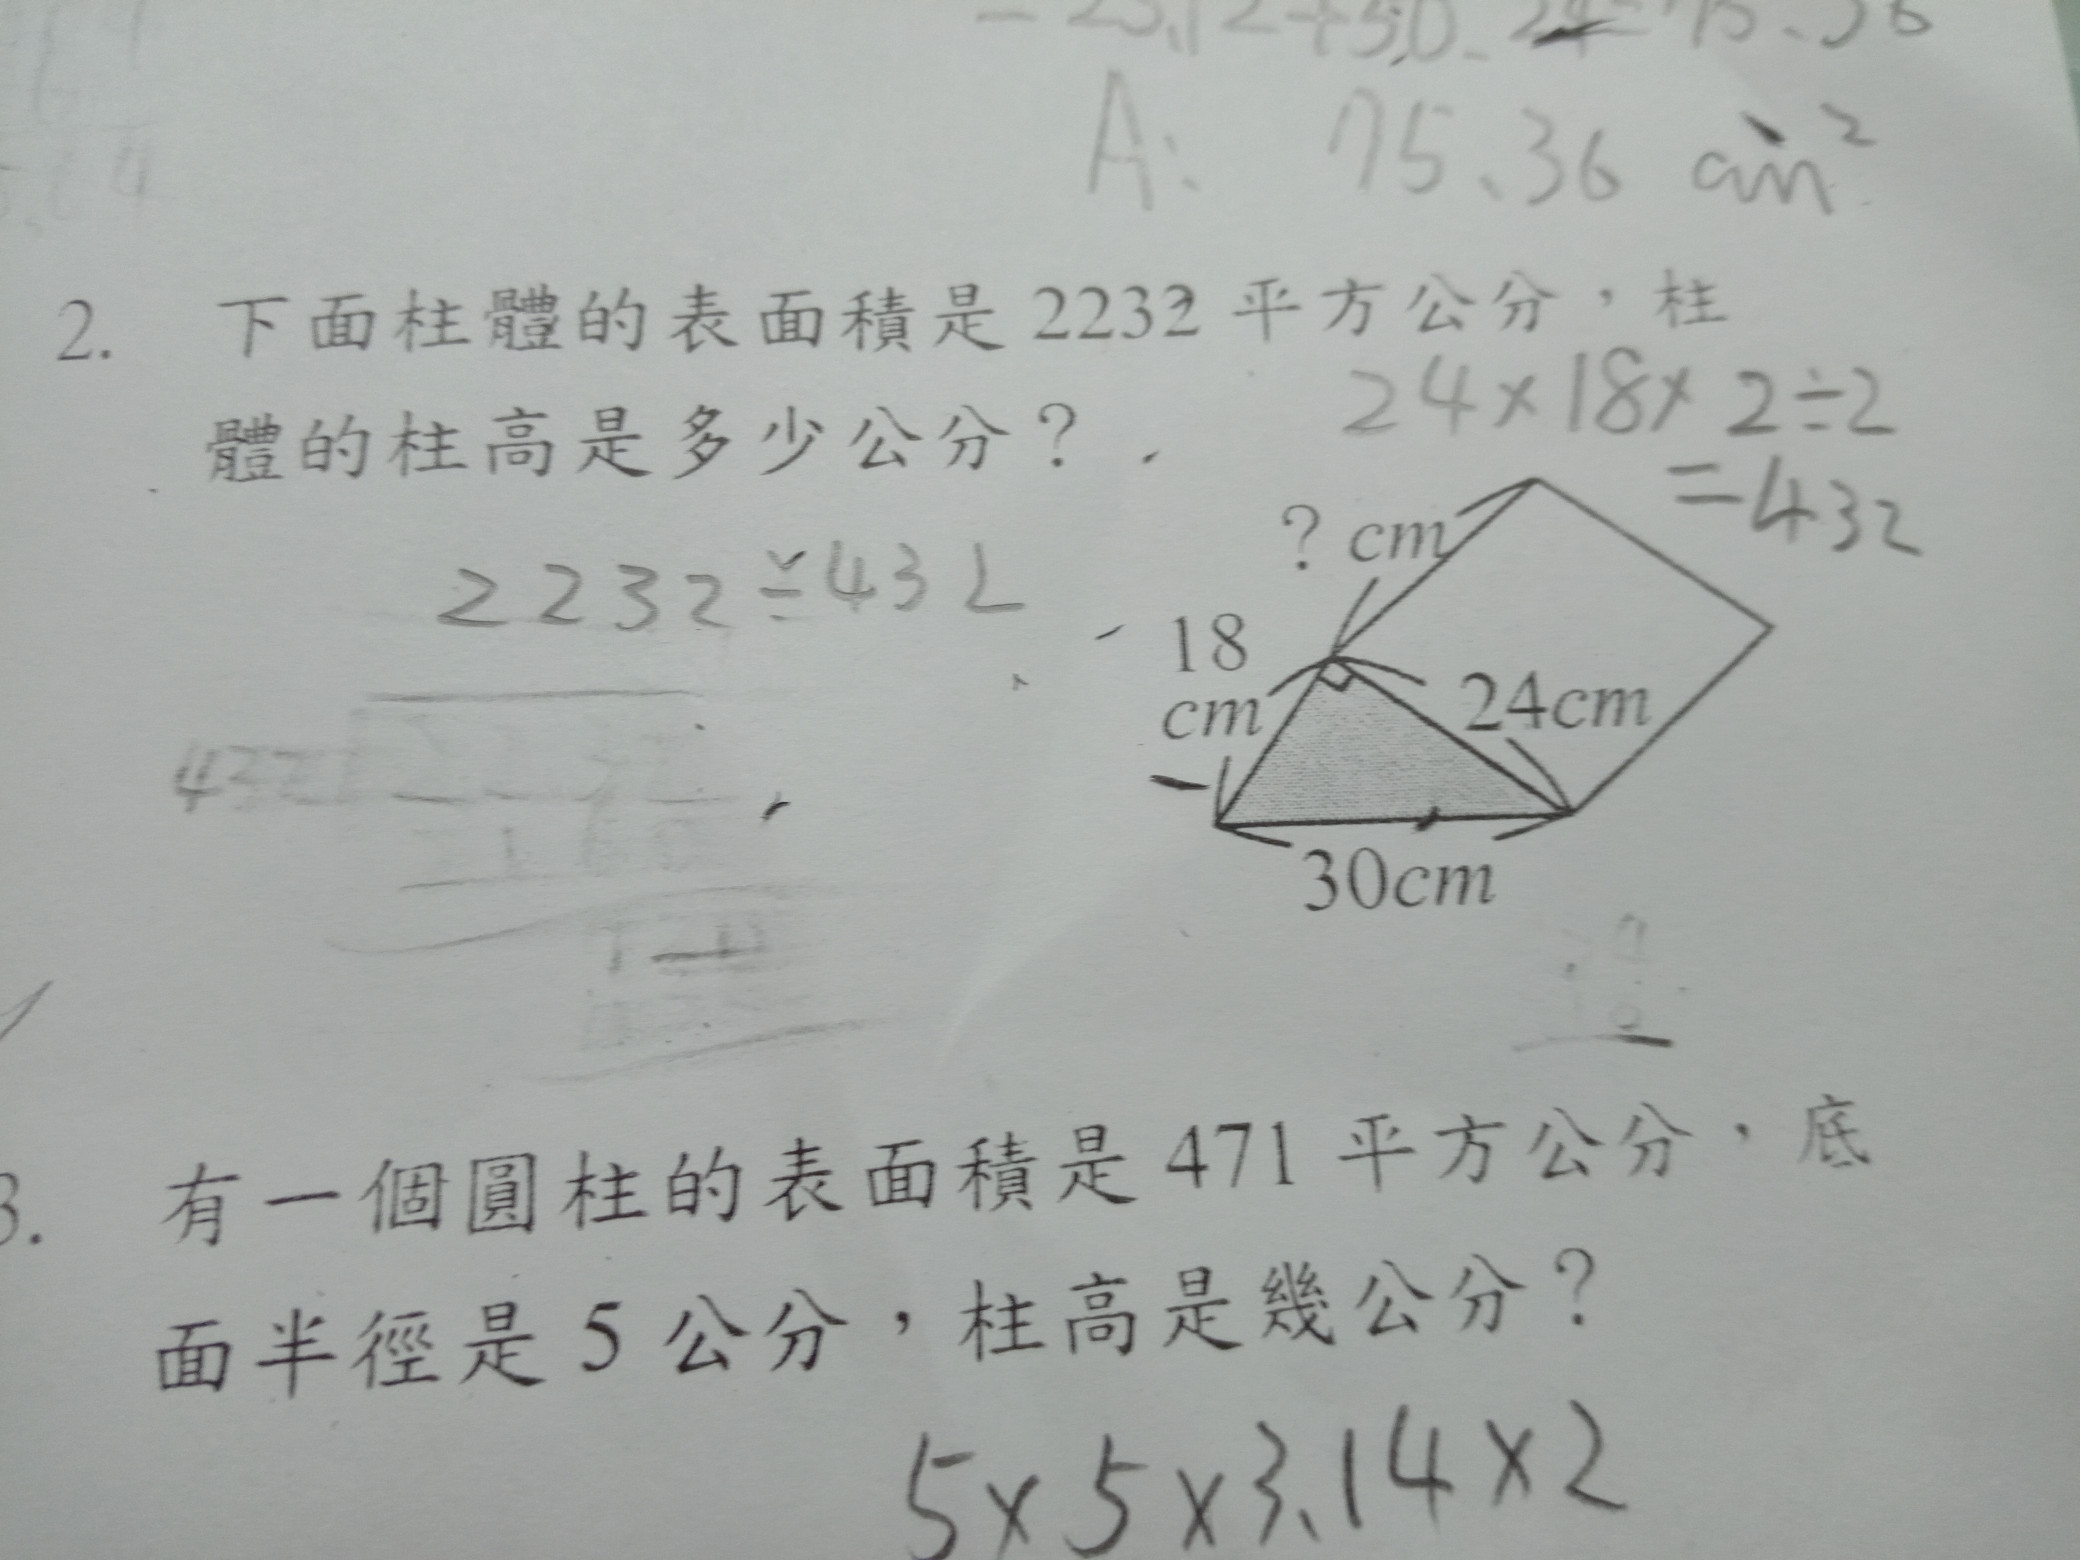 A: 75.36 cm²
2. 下面柱體的表面積是 2232 平方公分，柱
體的柱高是多少公分？
24×18×2÷2
=432
2232÷432
? cm
18
cm
24cm
30cm
432
3. 有一個圓柱的表面積是 471 平方公分，底
面半徑是 5 公分，柱高是幾公分？
5×5×3.14×2